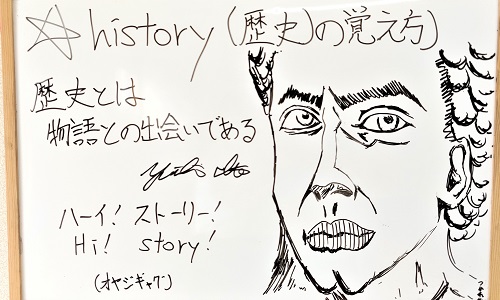 ☆history(歴史)の覚え方
歴史とは
物語との出会いである
ハーイ!ストーリー!
Hi! story!
(オヤジギャグ)